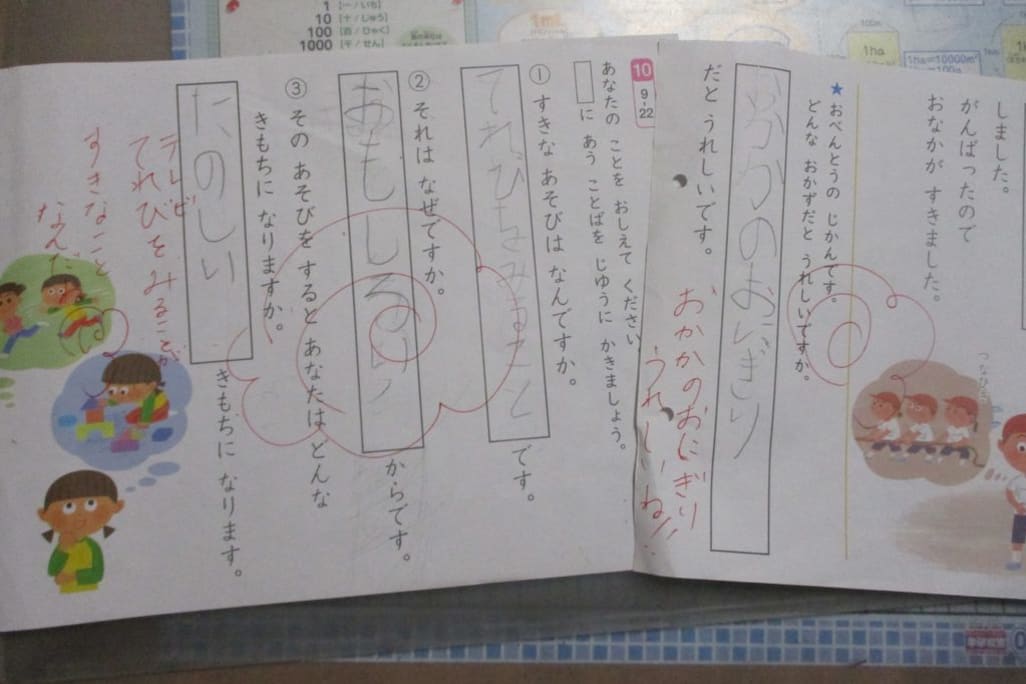 1 [一/いち]
10 [十/じゅう]
100 [百/ひゃく]
1000 [千/せん]
1mL
100m
1ha
1ha=10000m²
しました。
がんばったので
おなかが すきました。
つなひき
★ おべんとうの じかんです。
どんな おかずだと うれしいですか。
おかかのおにぎり
だと うれしいです。
おかかのおにぎり
うれしいね!!
10
9-22
あなたの ことを おしえて ください
□に あう ことばを じゆうに かきましょう。
① すきな あそびは なんですか。
てれびをみること
です。
② それは なぜですか。
おもしろい
からです。
③ その あそびを すると あなたは どんな
きもちに なりますか。
たのしい
きもちに なります。
テレビ
てれびをみることが
すきなこと
なんだ